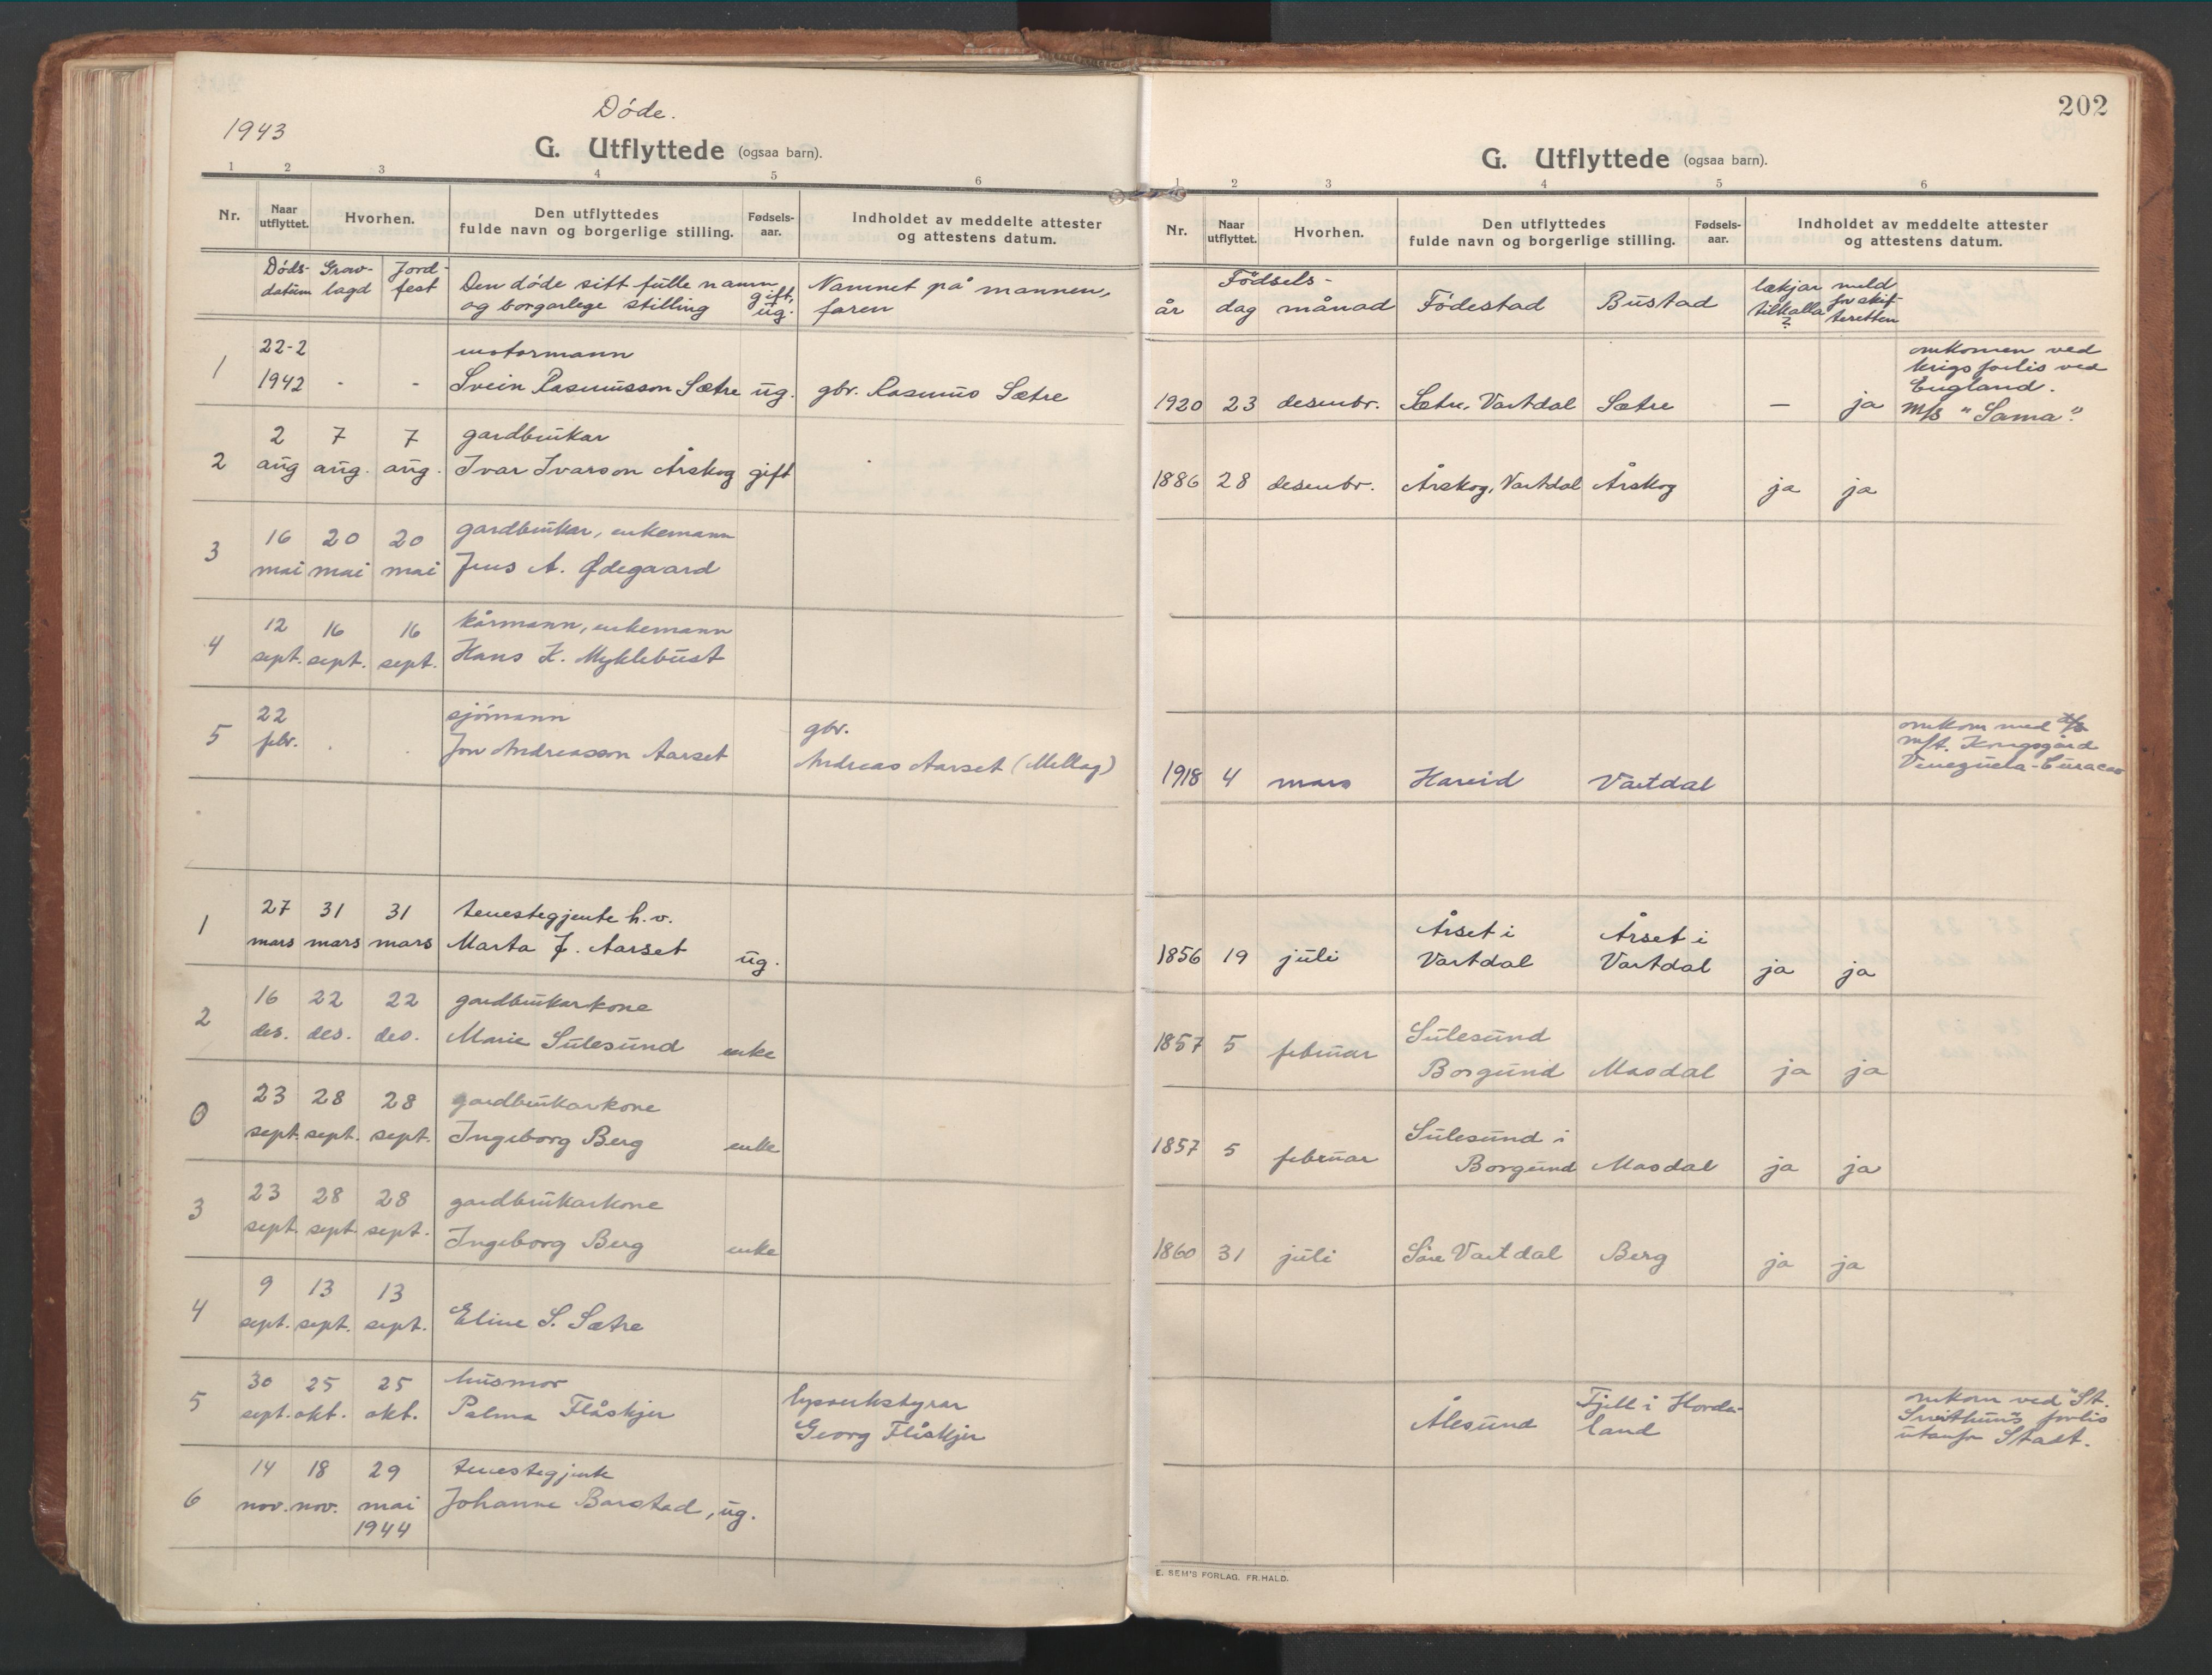 1943
Døde.
G. Utflyttede (ogsaa barn).
1 2 3 4 5 6
Nr.
Naar utflyttet.
Hvorhen.
Den utflyttedes fulde navn og borgerlige stilling.
Fødselsaar.
Indholdet av meddelte attester og attestens datum.
Døds- datum
Grav- lagd
Jord- fest
Den døde sitt fulle namn og borgarlege stilling
gift, ug.
Namnet på mannen, faren
1 22-2 1942 - - motormann
Svein Rasmusson Sætre ug. gbr. Rasmus Sætre
2 2 aug 7 aug. 7 aug. gardbrukar
Ivar Ivarson Årskog gift
3 16 mai 20 mai 20 mai gardbrukar, enkemann
Jens A. Ødegaard
4 12 sept. 16 sept. 16 sept. kårmann, enkemann
Hans K. Myklebust
5 22 febr. . . sjømann
Jon Andreasson Aarset gbr. Andreas Aarset (Mellag)
1 27 mars 31 mars 31 mars tenestegjente h.v.
Marta J. Aarset ug.
2 16 des. 22 des. 22 des. gardbrukarkone
Marie Sulesund enke
0 23 sept. 28 sept. 28 sept. gardbrukarkone
Ingeborg Berg enke
3 23 sept. 28 sept. 28 sept. gardbrukarkone
Ingeborg Berg enke
4 9 sept. 13 sept. 13 sept.
Eline S. Sætre
5 30 sept. 25 okt. 25 okt. husmor
Palma Flåskjer
Georg Flåskjer
6 14 nov. 18 nov. 29 mai 1944 tenestegjente
Johanne Barstad, ug.
202
G. Utflyttede (ogsaa barn).
1 2 3 4 5 6
Nr.
Naar utflyttet.
Hvorhen.
Den utflyttedes fulde navn og borgerlige stilling.
Fødselsaar.
Indholdet av meddelte attester og attestens datum.
Fødsels-
år dag månad Fødestad Bustad
lækjar tilkalla ?
meld for skifteretten
1920 23 desembr. Sætre, Vartdal Sætre — ja
omkomen ved
krigsforlis ved
England.
M/s "Sama".
1886 28 desembr. Årskog, Vartdal Årskog ja ja
1918 4 mars Hareid Vartdal
omkom med
m/t. Kongsgård
Venezuela-Curacao
1856 19 juli Årset i Vartdal Årset i Vartdal ja ja
1857 5 februar Sulesund Borgund Masdal ja ja
1857 5 februar Sulesund i Borgund Masdal ja ja
1860 31 juli Søre Vartdal Berg ja ja
Ålesund Fjell i Hordaland
omkom ved "St.
Svithun's forlis
utanfor Stadt.
E. SEM'S FORLAG. FR.HALD.